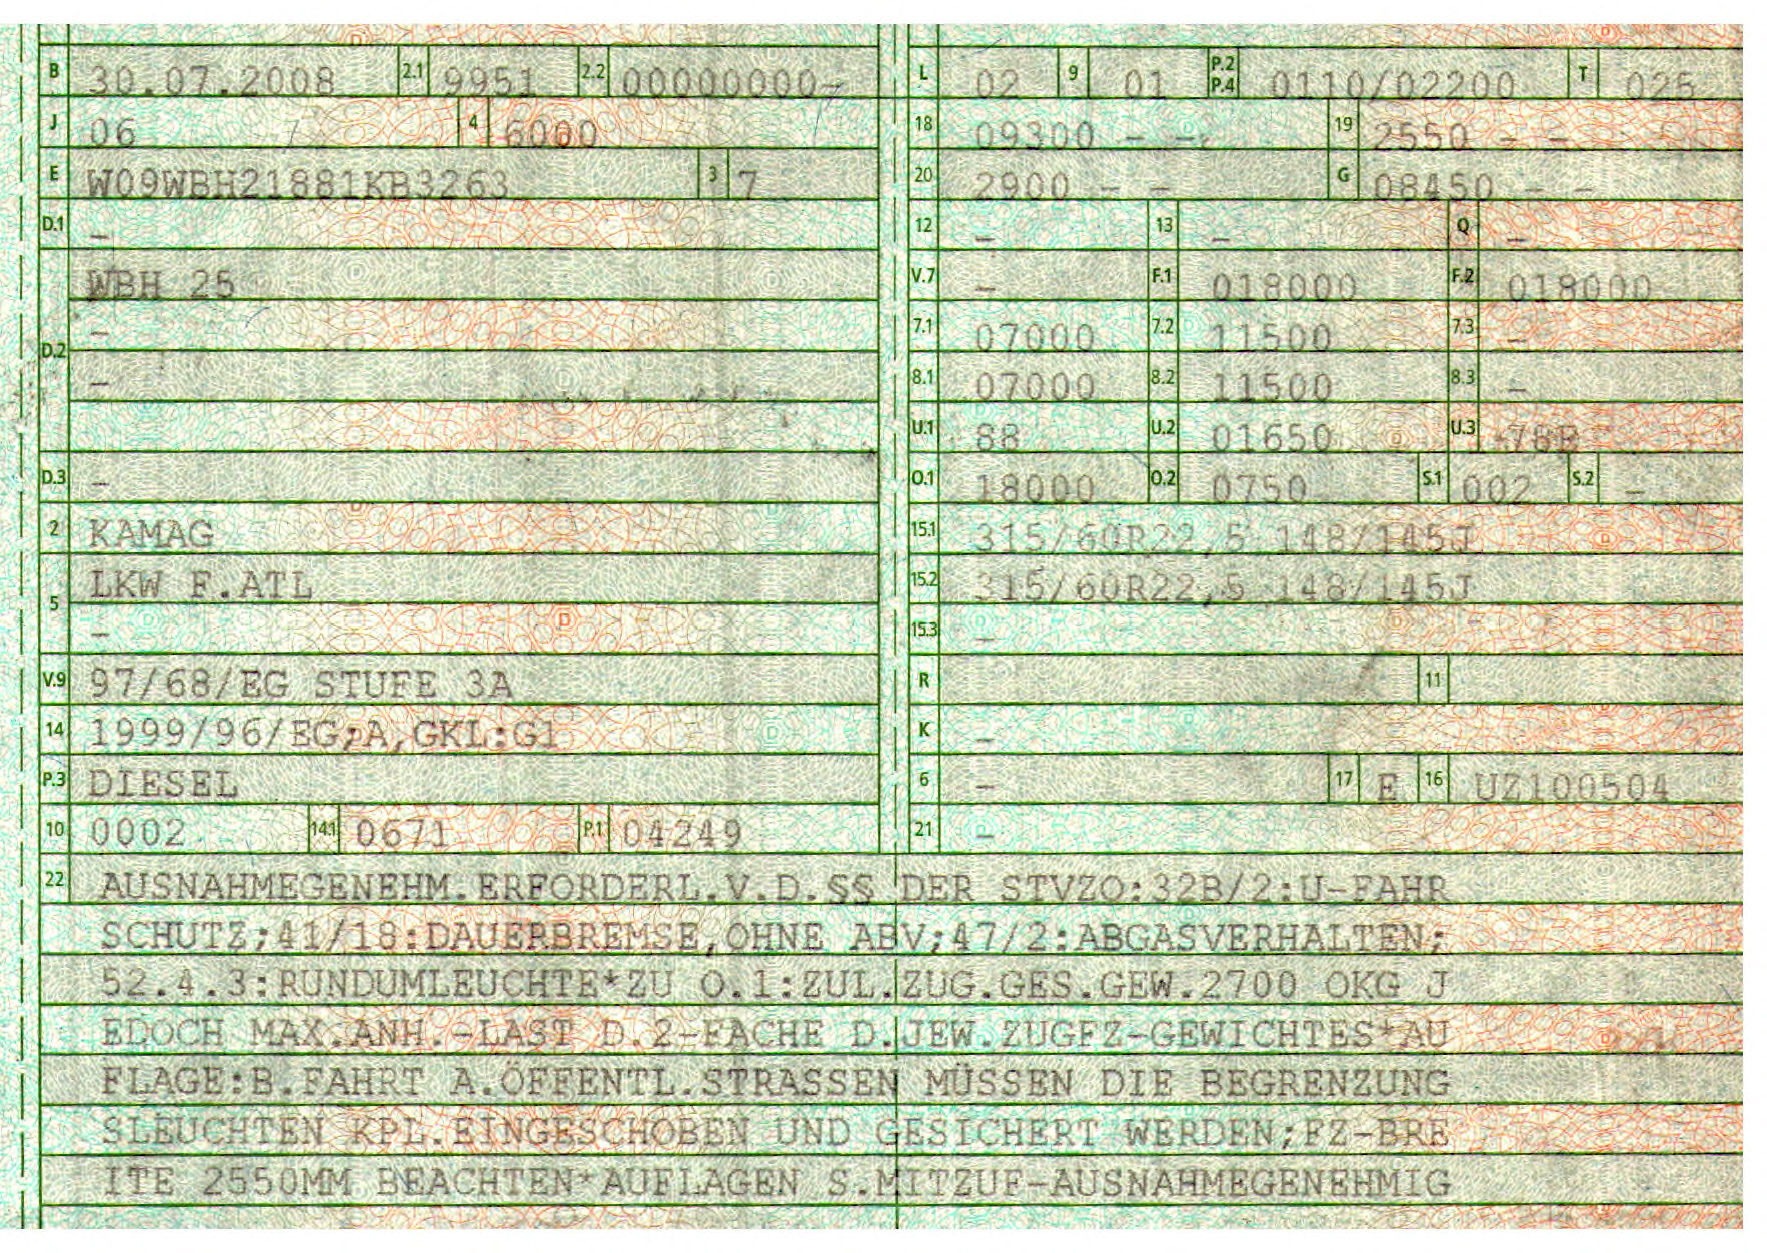 B 30.07.2008 2.1 9951 2.2 00000000-
J 06 4 6000
E W09WBH21881KB3263 3 7
D.1 –
WBH 25
–
D.2
–
D.3 –
2 KAMAG
LKW F.ATL
5
–
V.9 97/68/EG STUFE 3A
14 1999/96/EG;A,GKL:G1
P.3 DIESEL
10 0002 14.1 0671 P.1 04249
L 02 9 01 P.2 P.4 0110/02200 T 025
18 09300 – – 19 2550 – –
20 2900 – – G 08450 – –
12 – 13 – Q –
V.7 – F.1 018000 F.2 018000
7.1 07000 7.2 11500 7.3 –
8.1 07000 8.2 11500 8.3 –
U.1 88 U.2 01650 U.3 78P
O.1 18000 O.2 0750 S.1 002 S.2 –
15.1 315/60R22,5 148/145J
15.2 315/60R22,5 148/145J
15.3 –
R 11
K –
6 – 17 E 16 UZ100504
21 –
22 AUSNAHMEGENEHM.ERFORDERL.V.D.§§ DER STVZO:32B/2:U-FAHR
SCHUTZ;41/18:DAUERBREMSE,OHNE ABV;47/2:ABGASVERHALTEN;
52.4.3:RUNDUMLEUCHTE*ZU O.1:ZUL.ZUG.GES.GEW.2700 0KG J
EDOCH MAX.ANH.-LAST D.2-FACHE D.JEW.ZUGFZ-GEWICHTES*AU
FLAGE:B.FAHRT A.ÖFFENTL.STRASSEN MÜSSEN DIE BEGRENZUNG
SLEUCHTEN KPL.EINGESCHOBEN UND GESICHERT WERDEN;FZ-BRE
ITE 2550MM BEACHTEN*AUFLAGEN S.MITZUF-AUSNAHMEGENEHMIG